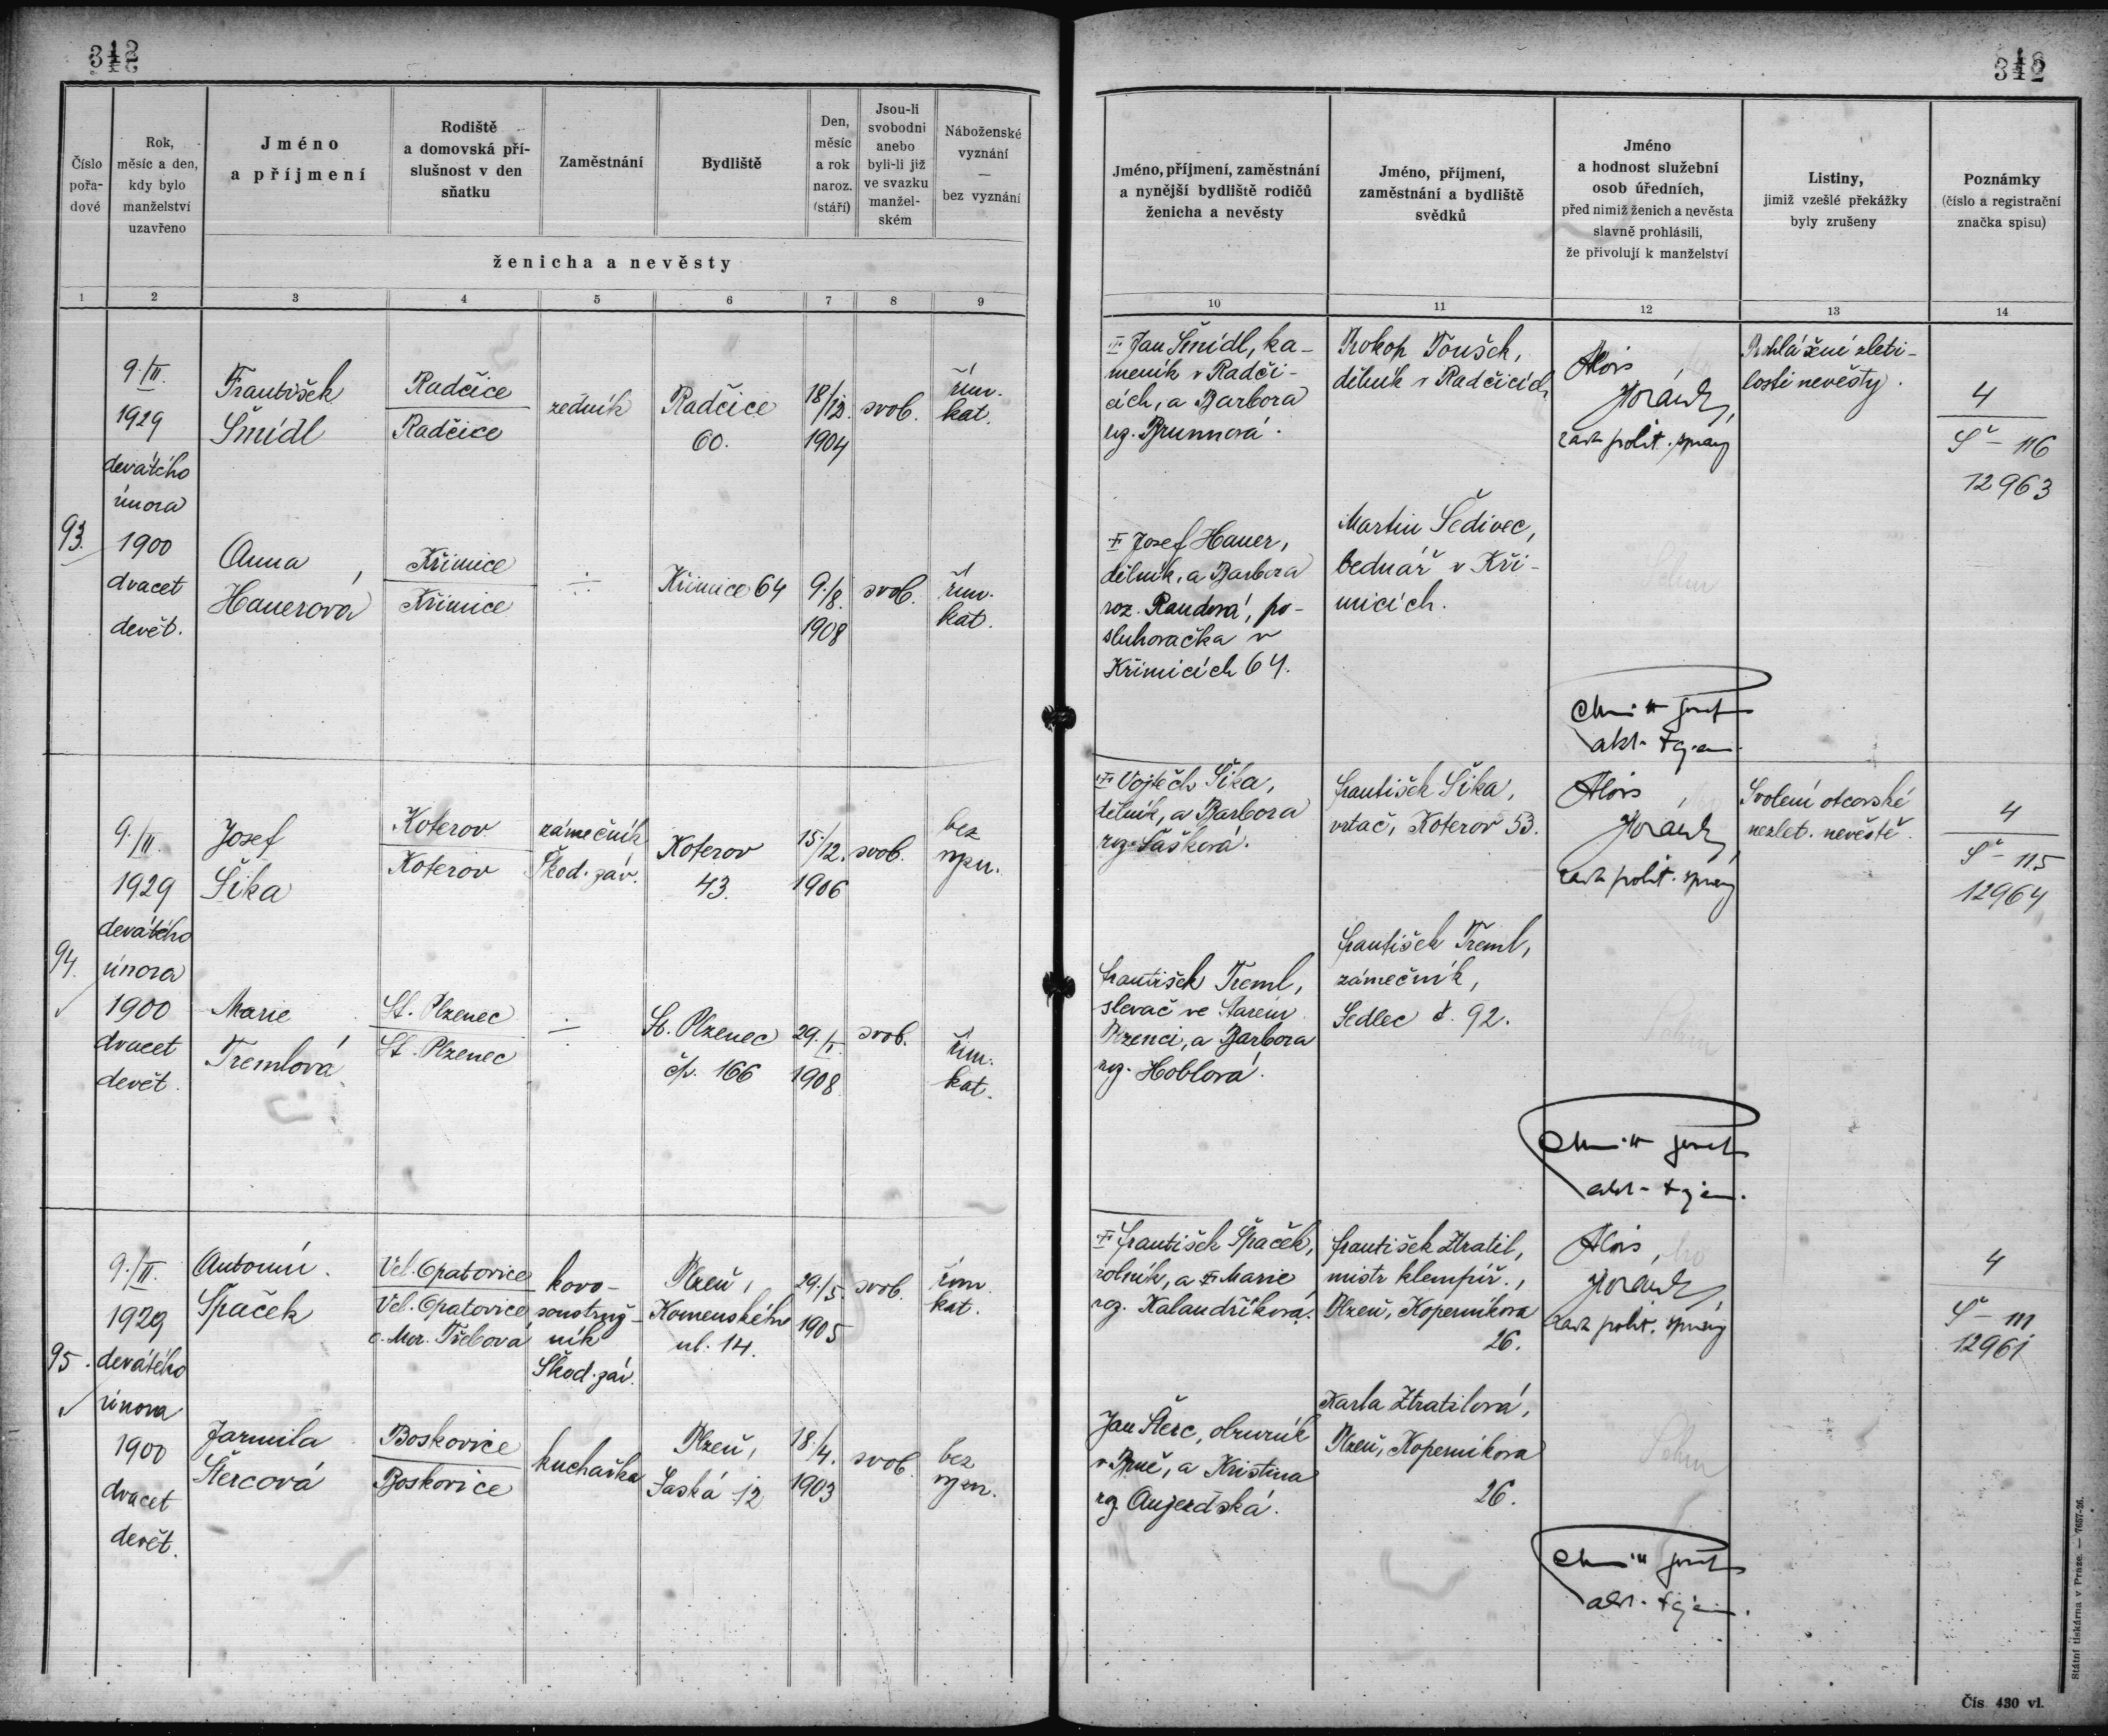 312
312
Číslo pořa-dové
Rok, měsíc a den, kdy bylo manželství uzavřeno
Jméno a příjmení
Rodiště a domovská pří-slušnost v den sňatku
Zaměstnání
Bydliště
Den, měsíc a rok naroz. (stáří)
Jsou-li svobodni anebo byli-li již ve svazku manžel-ském
Náboženské vyznání — bez vyznání
ženicha a nevěsty
Jméno, příjmení, zaměstnání a nynější bydliště rodičů ženicha a nevěsty
Jméno, příjmení, zaměstnání a bydliště svědků
Jméno a hodnost služební osob úředních, před nimiž ženich a nevěsta slavně prohlásili, že přivolují k manželství
Listiny, jimiž vzešlé překážky byly zrušeny
Poznámky (číslo a registrační značka spisu)
1 2 3 4 5 6 7 8 9 10 11 12 13 14
93.
9./II.
1929
devátého
února
1900
dvacet
devět.
František
Šmídl
Radčice
Radčice
zedník
Radčice
60.
18/12.
1904
svob.
řím.
kat.
Anna
Hauerová
Křimice
Křimice
Křimice 64
9./8.
1908
svob.
řím.
kat.
Jan Šmídl, ka-
meník v Radči-
cích, a Barbora
roz. Brunnová.
Josef Hauer,
dělník, a Barbora
roz. Raudová, po-
sluhovačka v
Křimicích 64.
Prokop Toušek,
dělník v Radčicích
Martin Šedivec,
bednář v Kři-
micích.
Alois
zást. polit. správy
Prohlášení zleti-
losti nevěsty.
4
Š - 116
12963
94.
9./II.
1929
devátého
února
1900
dvacet
devět.
Josef
Šika
Koterov
Koterov
zámečník
Škod. záv.
Koterov
43.
15/12.
1906
svob.
bez
vyzn.
Marie
Tremlová
St. Plzenec
St. Plzenec
St. Plzenec
čp. 166
29./I.
1908
svob.
řím.
kat.
Vojtěch Šika,
dělník, a Barbora
roz. Šašková.
František Treml,
slevač ve Starém
Plzenci, a Barbora
roz. Hoblová.
František Šika,
vrtač, Koterov 53.
František Treml,
zámečník,
Sedlec č. 92.
Alois
zást. polit. správy
Svolení otcovské
nezlet. nevěstě.
4
Š - 115
12964
95.
9./II.
1929
devátého
února
1900
dvacet
devět.
Antonín
Špaček
Vel. Opatovice
Vel. Opatovice
o. Mor. Třebová
kovo-
soustruž-
ník
Škod. záv.
Plzeň,
Komenského
ul. 14.
29./5.
1905
svob.
řím.
kat.
Jarmila
Štercová
Boskovice
Boskovice
kuchařka
Plzeň,
Saská 12
18/4.
1903
svob.
bez
vyzn.
František Špaček,
rolník, a Marie
roz. Kalandříková.
Jan Šterc, obuvník
v Brně, a Kristina
roz. Aujezdská.
František Ztratil,
mistr klempíř.,
Plzeň, Koperníkova
26.
Karla Ztratilová,
Plzeň, Koperníkova
26.
Alois
zást. polit. správy
4
Š - 111
12961
Státní tiskárna v Praze. — 7657-26.
Čís. 430 vl.